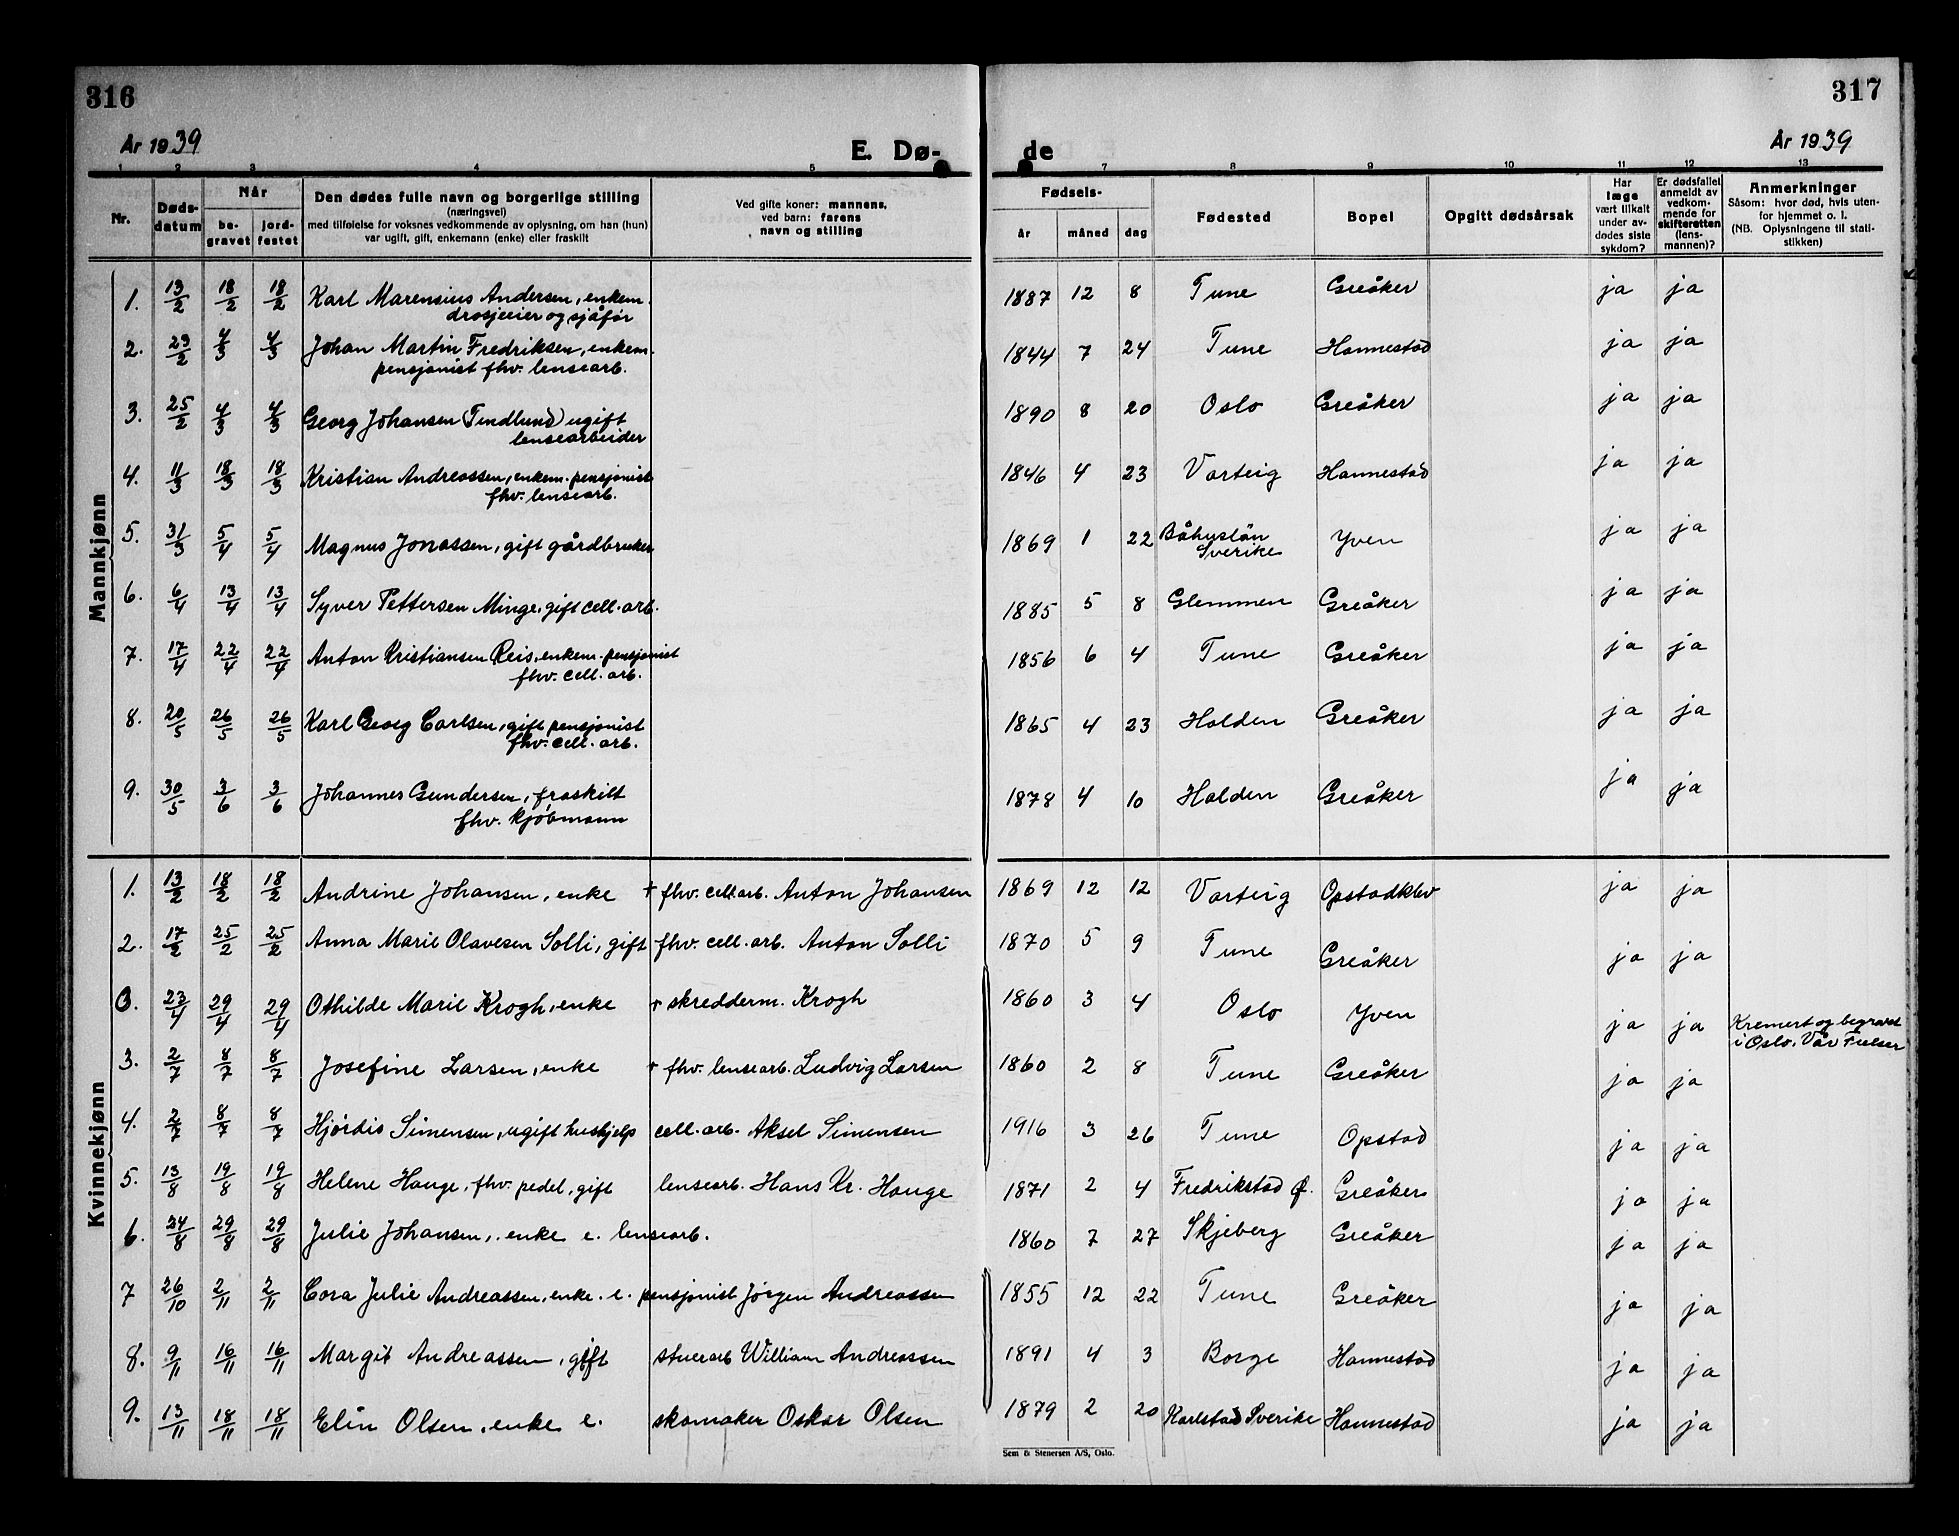 316
317
År 1939
E. Dø-
de
År 1939
1 2 3 4 5 7 8 9 10 11 12 13
Nr.
Døds-
datum
Når
be-
gravet
jord-
festet
Den dødes fulle navn og borgerlige stilling
(næringsvei)
med tilføielse for voksnes vedkommende av oplysning, om han (hun)
var ugift, gift, enkemann (enke) eller fraskilt
Ved gifte koner: mannens,
ved barn: farens
navn og stilling
Fødsels-
år måned dag
Fødested
Bopel
Opgitt dødsårsak
Har
læge
vært tilkalt
under av-
dødes siste
sykdom?
Er dødsfallet
anmeldt av
vedkom-
mende for
skifteretten
(lens-
mannen)?
Anmerkninger
Såsom: hvor død, hvis uten-
for hjemmet o. l.
(NB. Oplysningene til stati-
stikken)
Mannkjønn
1. 13/2 18/2 18/2 Karl Marensius Andersen, enkem. 1887 12 8 Tune Greåker ja ja
drosjeeier og sjåfør
2. 23/2 4/3 4/3 Johan Martin Fredriksen, enkem. 1844 7 24 Tune Hannestad ja ja
pensjonist fhv. lensearb.
3. 25/2 4/3 4/3 Georg Johansen (Tindlund) ugift 1890 8 20 Oslo Greåker ja ja
lensearbeider
4. 11/3 18/3 18/3 Kristian Andreassen, enkem. pensjonist 1846 4 23 Varteig Hannestad ja ja
fhv. lensearb.
5. 31/3 5/4 5/4 Magnus Jonassen, gift gårdbruker 1869 1 22 Båhuslän Yven ja ja
Sverike
6. 6/4 13/4 13/4 Syver Pettersen Minge, gift cell. arb. 1885 5 8 Glemmen Greåker ja ja
7. 17/4 22/4 22/4 Anton Kristiansen Reis, enkem. pensjonist 1856 6 4 Tune Greåker ja ja
fhv. cell. arb.
8. 20/5 26/5 26/5 Karl Georg Carlsen, gift pensjonist 1865 4 23 Halden Greåker ja ja
fhv. cell. arb.
9. 30/5 3/6 3/6 Johannes Gundersen, fraskilt 1878 4 10 Halden Greåker ja ja
fhv. kjøbmann
Kvinnekjønn
1. 13/2 18/2 18/2 Andrine Johansen, enke + fhv. cell. arb. Anton Johansen 1869 12 12 Varteig Opstadklev ja ja
2. 17/2 25/2 25/2 Anna Marie Olavesen Solli, gift fhv. cell. arb. Anton Solli 1870 5 9 Tune Greåker ja ja
0. 23/4 29/4 29/4 Othilde Marie Krogh, enke + skredderm. Krogh 1860 3 4 Oslo Yven ja ja Kremert og begravet
i Oslo. Vår Frelser
3. 2/7 8/7 8/7 Josefine Larsen, enke + fhv. lensearb. Ludvig Larsen 1860 2 8 Tune Greåker ja ja
4. 2/7 8/7 8/7 Hjørdis Simensen, ugift hushjelp cell. arb. Aksel Simensen 1916 3 26 Tune Opstad ja ja
5. 13/8 19/8 19/8 Helene Hauge, fhv. pedel, gift lensearb. Hans Kr. Hauge 1871 2 4 Fredrikstad Ø. Greåker ja ja
6. 24/8 29/8 29/8 Julie Johansen, enke e. lensearb. 1860 7 27 Skjeberg Greåker ja ja
7 26/10 2/11 2/11 Cora Julie Andreassen, enke. e. pensjonist Jørgen Andreassen 1855 12 22 Tune Greåker ja ja
8. 9/11 16/11 16/11 Margit Andreassen, gift stuerarb William Andreassen 1891 4 3 Borge Hannestad ja ja
9. 13/11 18/11 18/11 Elin Olsen, enke e. skomaker Oskar Olsen 1879 2 20 Karlstad Sverike Hannestad ja ja
Sem & Stenersen A/S, Oslo.